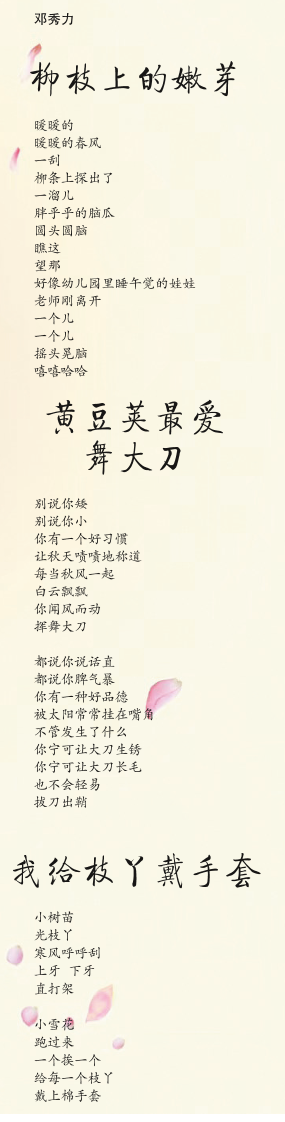 邓秀力
柳枝上的嫩芽
暖暖的
暖暖的春风
一刮
柳条上探出了
一溜儿
胖乎乎的脑瓜
圆头圆脑
瞧这
望那
好像幼儿园里睡午觉的娃娃
老师刚离开
一个儿
一个儿
摇头晃脑
嘻嘻哈哈
黄豆荚最爱
舞大刀
别说你矮
别说你小
你有一个好习惯
让秋天啧啧地称道
每当秋风一起
白云飘飘
你闻风而动
挥舞大刀
都说你说话直
都说你脾气暴
你有一种好品德
被太阳常常挂在嘴角
不管发生了什么
你宁可让大刀生锈
你宁可让大刀长毛
也不会轻易
拔刀出鞘
我给枝丫戴手套
小树苗
光枝丫
寒风呼呼刮
上牙 下牙
直打架
小雪花
跑过来
一个挨一个
给每一个枝丫
戴上棉手套